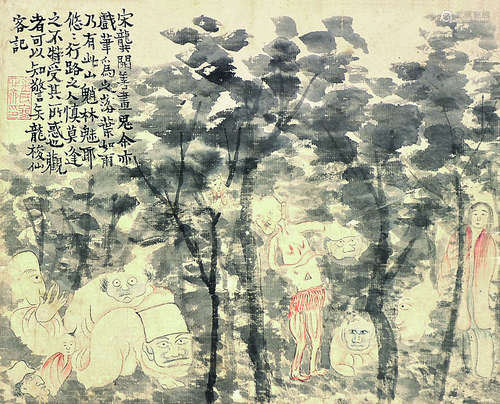 宋龔開善畫鬼余亦
戲筆爲之落葉如雨
乃有此山魈林魅耶
悠〻行路之人慎莫逢
之不特受其所惑也觀
者可以知警矣龍梭仙
客記